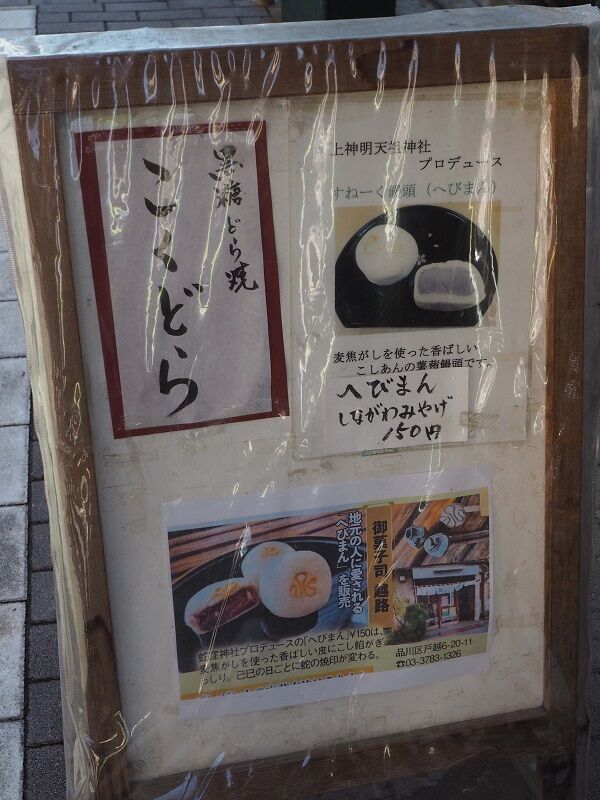 黒糖どら焼
こくどら
上神明天祖神社
プロデュース
すねーく饅頭（へびまん）
麦焦がしを使った香ばしい
こしあんの薯蕷饅頭です。
へびまん
しながわみやげ
150円
地元の人に愛される
「へびまん」を販売
御菓子司 越路
蛇窪神社プロデュースの「へびまん」¥150は、
麦焦がしを使った香ばしい皮にこし餡がぎ
っしり。己巳の日ごとに蛇の焼印が変わる。
品川区戸越6-20-11
☎03-3783-1326